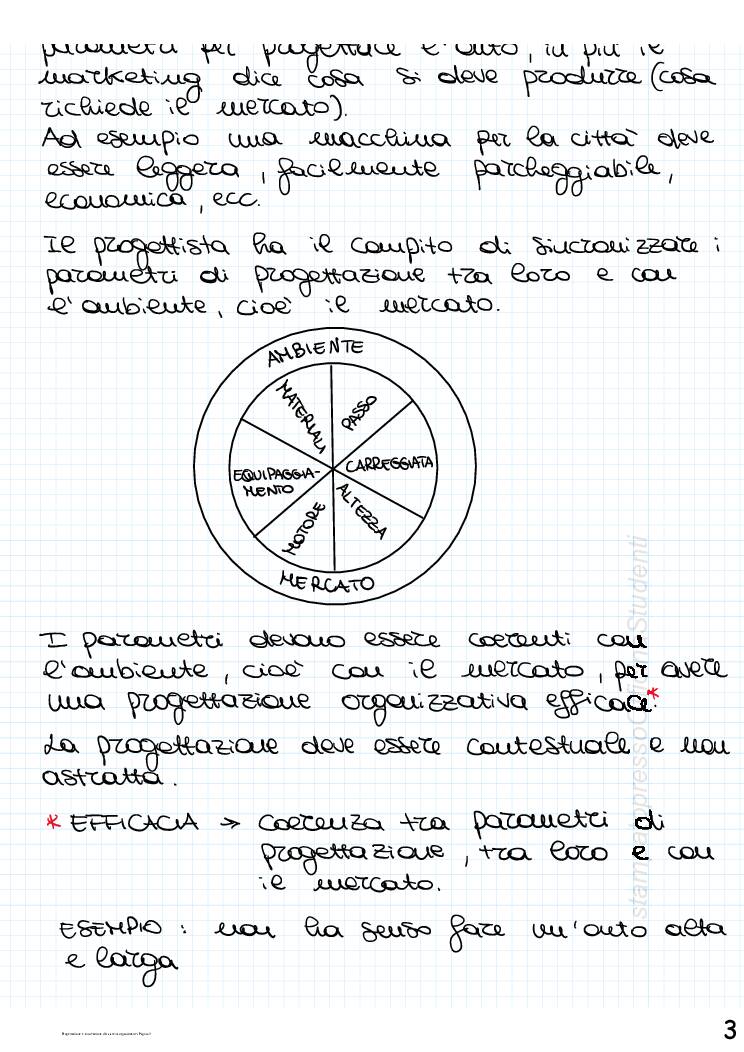 parametri per progettare l'auto, in più il
marketing dice cosa si deve produrre (cosa
richiede il mercato).
Ad esempio una macchina per la città deve
essere leggera, facilmente parcheggiabile,
economica, ecc.
Il progettista ha il compito di sincronizzare i
parametri di progettazione tra loro e con
l'ambiente, cioè il mercato.
AMBIENTE
MATERIALI
PASSO
EQUIPAGGIA-
MENTO
CARREGGIATA
MOTORE
ALTEZZA
MERCATO
I parametri devono essere coerenti con
l'ambiente, cioè con il mercato, per avere
una progettazione organizzativa efficace.*
La progettazione deve essere contestuale e non
astratta.
* EFFICACIA → coerenza tra parametri di
progettazione, tra loro e con
il mercato.
ESEMPIO: non ha senso fare un'auto alta
e larga
3